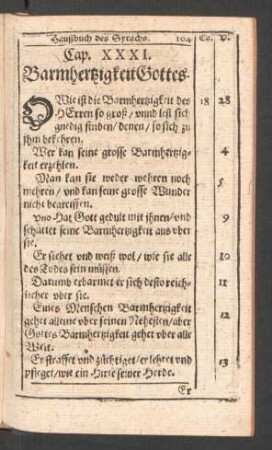 Haußbuch des Syrachs. 104 Ca. V.
Cap. XXXI.
Barmhertzigkeit Gottes.
O Wie ist die Barmhertzigkeit des 18 28
HErren so groß / vnnd lest sich
gnedig finden / denen / so sich zu
jhm bekehren.
Wer kan seine grosse Barmhertzig- 4
keit erzehlen.
Man kan sie weder wehren noch 5
mehren / vnd kan seine grosse Wunder
nicht begreiffen.
vnd Hat Gott gedult mit ihnen / vnd 9
schüttet seine Barmhertzigkeit aus vber
sie.
Er siehet vnd weiß wol / wie sie alle 10
des Todes sein müssen.
Darumb erbarmet er sich desto reich- 11
licher vber sie.
Eines Menschen Barmhertzigkeit 12
gehet alleine vber seinen Nehesten / aber
Gottes Barmhertzigkeit gehet vber alle
Welt.
Er straffet vnd züchtiget / er lehret vnd 13
pfleget / wie ein Hirte seiner Herde.
Er